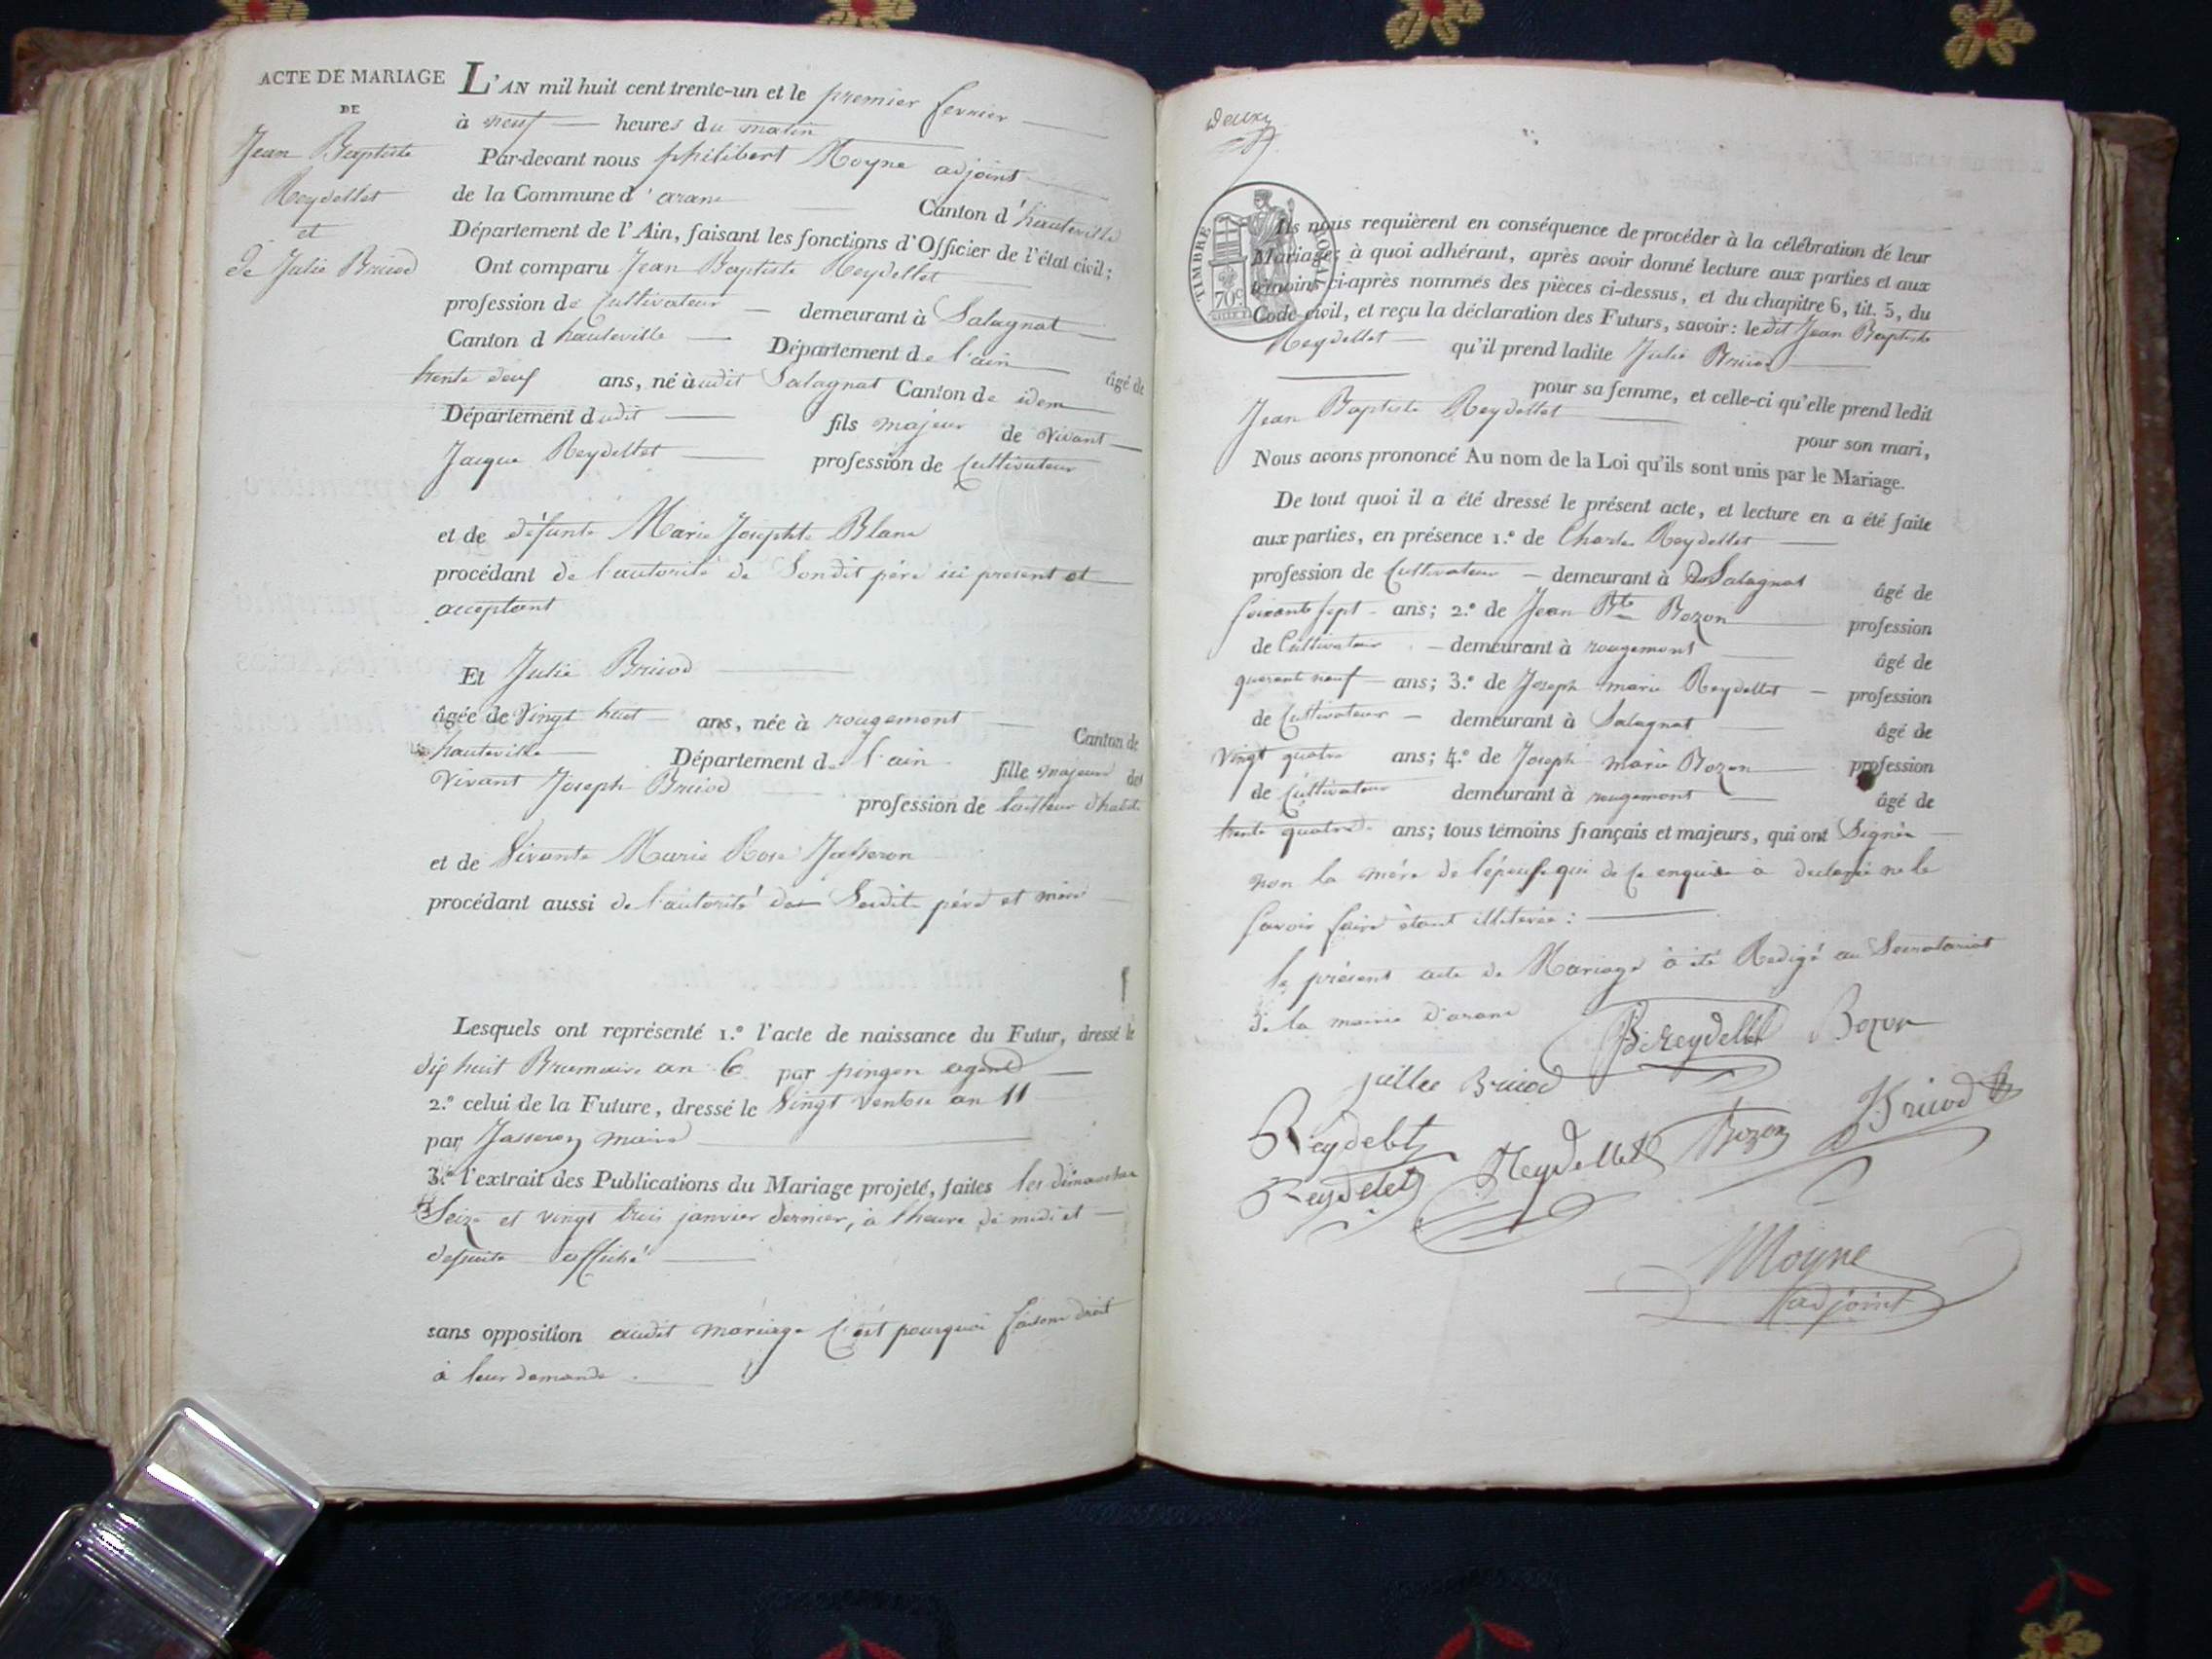 ACTE DE MARIAGE
DE
Jean Baptiste
Reydellet
et
de Julie Bricod
L'AN mil huit cent trente-un et le premier fevrier
à neuf heures du matin
Par-devant nous philibert Moyne adjoint
de la Commune d'arane Canton d'hauteville
Département de l'Ain, faisant les fonctions d'Officier de l'état civil;
Ont comparu Jean Baptiste Reydellet
profession de Cultivateur demeurant à Salagnat
Canton d hauteville Département de l'ain âgé de
trente deuf ans, né àudit Salagnat Canton de idem
Département dudit fils majeur de vivant
Jacque Reydellet profession de Cultivateur
et de défunte Marie Josephte Blanc
procédant de l'autorité de Sondit père ici present et
acceptant
Et Julie Bricod
âgée de Vingt huit ans, née à rougemont Canton de
hauteville Département de l'ain fille majeure de
vivant Joseph Bricod profession de tailleur d'habit
et de Vivante Marie Rose Jasseron
procédant aussi de l'autorité des Sesdits père et mère
Lesquels ont représenté 1.° l'acte de naissance du Futur, dressé le
dix huit Brumaire an 6 par pingon agend
2.° celui de la Future, dressé le Vingt ventose an 11
par Jasseron maire
3.° l'extrait des Publications du Mariage projeté, faites les dimanches
Seize et vingt trois janvier dernier, à l'heure de midi et
desuite affiché
sans opposition audit mariage C'est pourquoi faisons droit
à leur demande.
deux
TIMBRE ROYAL
70c
Ils nous requièrent en conséquence de procéder à la célébration de leur
Mariage; à quoi adhérant, après avoir donné lecture aux parties et aux
témoins ci-après nommés des pièces ci-dessus, et du chapitre 6, tit. 5, du
Code civil, et reçu la déclaration des Futurs, savoir: ledit Jean Baptiste
Reydellet qu'il prend ladite Julie Bricod
pour sa femme, et celle-ci qu'elle prend ledit
Jean Baptiste Reydellet
pour son mari,
Nous avons prononcé Au nom de la Loi qu'ils sont unis par le Mariage.
De tout quoi il a été dressé le présent acte, et lecture en a été faite
aux parties, en présence 1.° de Charles Reydellet
profession de Cultivateur demeurant à Salagnat âgé de
soixante sept ans; 2.° de Jean Bte Bozon profession
de Cultivateur demeurant à rougemont âgé de
quarant neuf ans; 3.° de Joseph marie Reydellet profession
de Cultivateur demeurant à Salagnat âgé de
Vingt quatre ans; 4.° de Joseph marie Bozon profession
de Cultivateur demeurant à rougemont âgé de
trente quatre ans; tous témoins français et majeurs, qui ont Signés
non la mére de l'épouse qui de ce enquise à declaré ne le
savoir faire étant illeterée:
le présent acte de Mariage à été Redigé au Secretariat
de la mairie d'arane
JBReydellet Bozon
jullie Bricod
Reydelet Bricod
Reydelet Reydellet Bozon
Moyne
adjoint